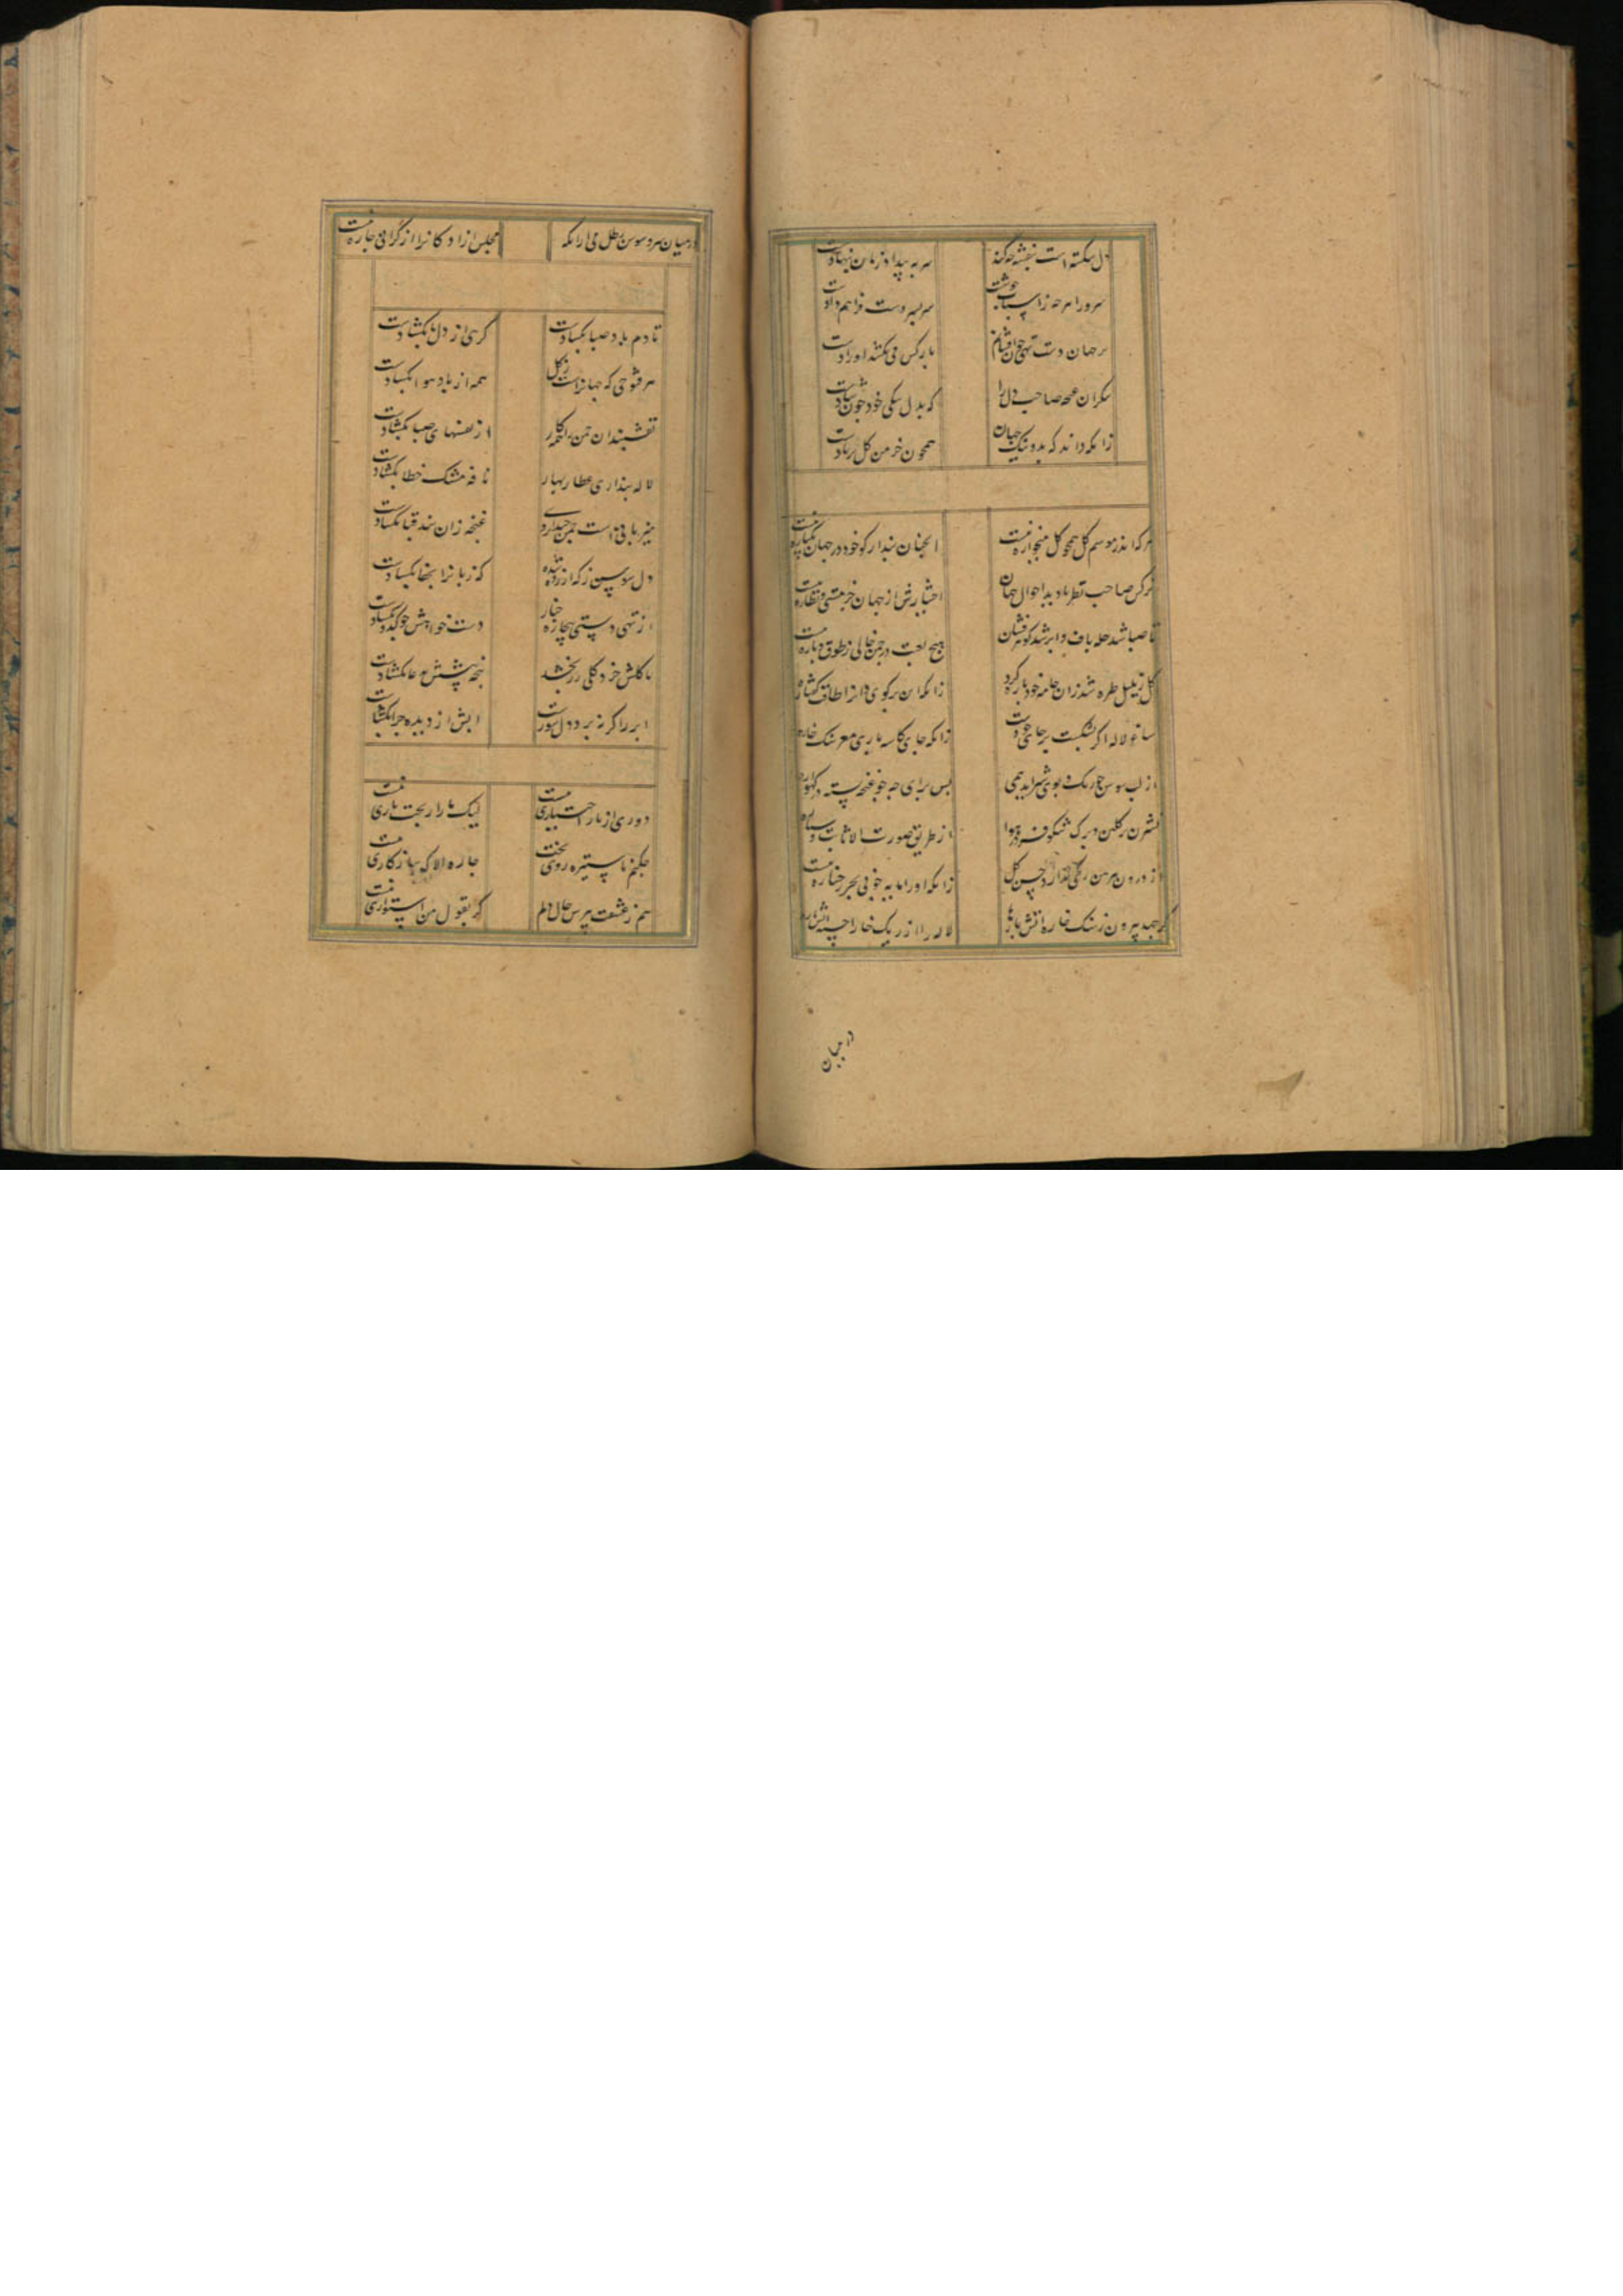 دل شکسته است بنفشه چه کند
سر به بیداد زمان بنهادست
سرو را هر چه ز اسباب خوشست
سر بسر دست فراهم دادست
بر جهان دست تهی می افشاند
با رکس می نکشد او رادست
نگران غنچه صاحب دل را
که بدل تنگی خود چون شادست
زانکه داند که بد و نیک جهان
همچون خرمن گل بر بادست
هر که اندر موسم گل همچو گل میخواره نیست
انچنان پندار کو خود در جهان یکباره نیست
نرکس صاحب نظر تا دید احوال جهان
اختیارش از جهان جز مستی و نظاره نیست
تا صبا شد حله باف و ابر شد گوهر فشان
هیچ لعبت در چمن خالی ز طوق و یاره نیست
گل ز بلبل طره شد زان جامه خود پاره کرد
زانکه
ساغر لاله اگر بشکست بر جای خودست
زانکه جای کاسه بازی معر سنگ خاره
از لب سوسن چو رنگ و بوی شیر اید همی
بس برای چه چو غنچه بسته در گهواره
نسترن بر گلبن و برگ شکوفه در هوا
از طریق صورت الا ثابت و سیاره
از درون پیرهن رنگی ندارد حسن گل
زانکه او را مایه خوبی بجز رخساره نیست
گر جهد بیرون ز سنگ خاره اتش بارها
لاله را از ریک خارا چه اتش پاره
در میان
در میان سرو و سوسن رطل می ار انکه
مجلس ازادکانرا از گرانی چاره نیست
تا دم باد صبا بکشادست
گرهی از دل ما بکشادست
هر فتوحی که جهانراست ز گل
همه از باد هوا بکشادست
نقشبندان چمن را
از نفسهای صبا بکشادست
لاله پنداری عطار بهار
نافه مشک خطا بکشادست
میر باقی است چمن
غنچه زان بند قبا بکشادست
دل سوسن ز که ازرده شده
که زبانرا بجفا بکشادست
از تهی دستی بیچاره چنار
دست خواهش چو گدا بکشادست
تا گلش خرده گلی زر بخشد
پنجه پیشش بدعا بکشادست
ابر را گر نه برو دل سوزست
ابش از دیده چرا بکشادست
دوری از یار اختیاری نیست
لیک ما را ز بخت یاری نیست
چکنم با ستیزه روی بخت
چاره الا که سازکاری نیست
هم ز عشقت بپرس حال دلم
گر بقول من استواری نیست